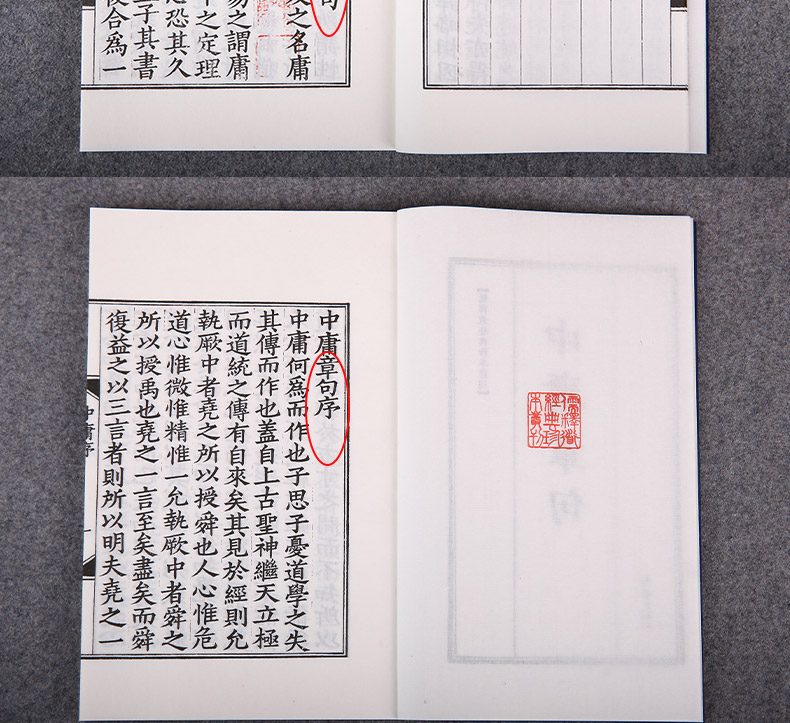 句
及之名庸
易之謂庸
之定理
恐其久
子其書
復合爲一
中庸章句序
中庸何爲而作也子思子憂道學之失
其傳而作也蓋自上古聖神繼天立極
而道統之傳有自來矣其見於經則允
執厥中者堯之所以授舜也人心惟危
道心惟微惟精惟一允執厥中者舜之
所以授禹也堯之一言至矣盡矣而舜
復益之以三言者則所以明夫堯之一
中庸序
一
儒釋道
經典珍